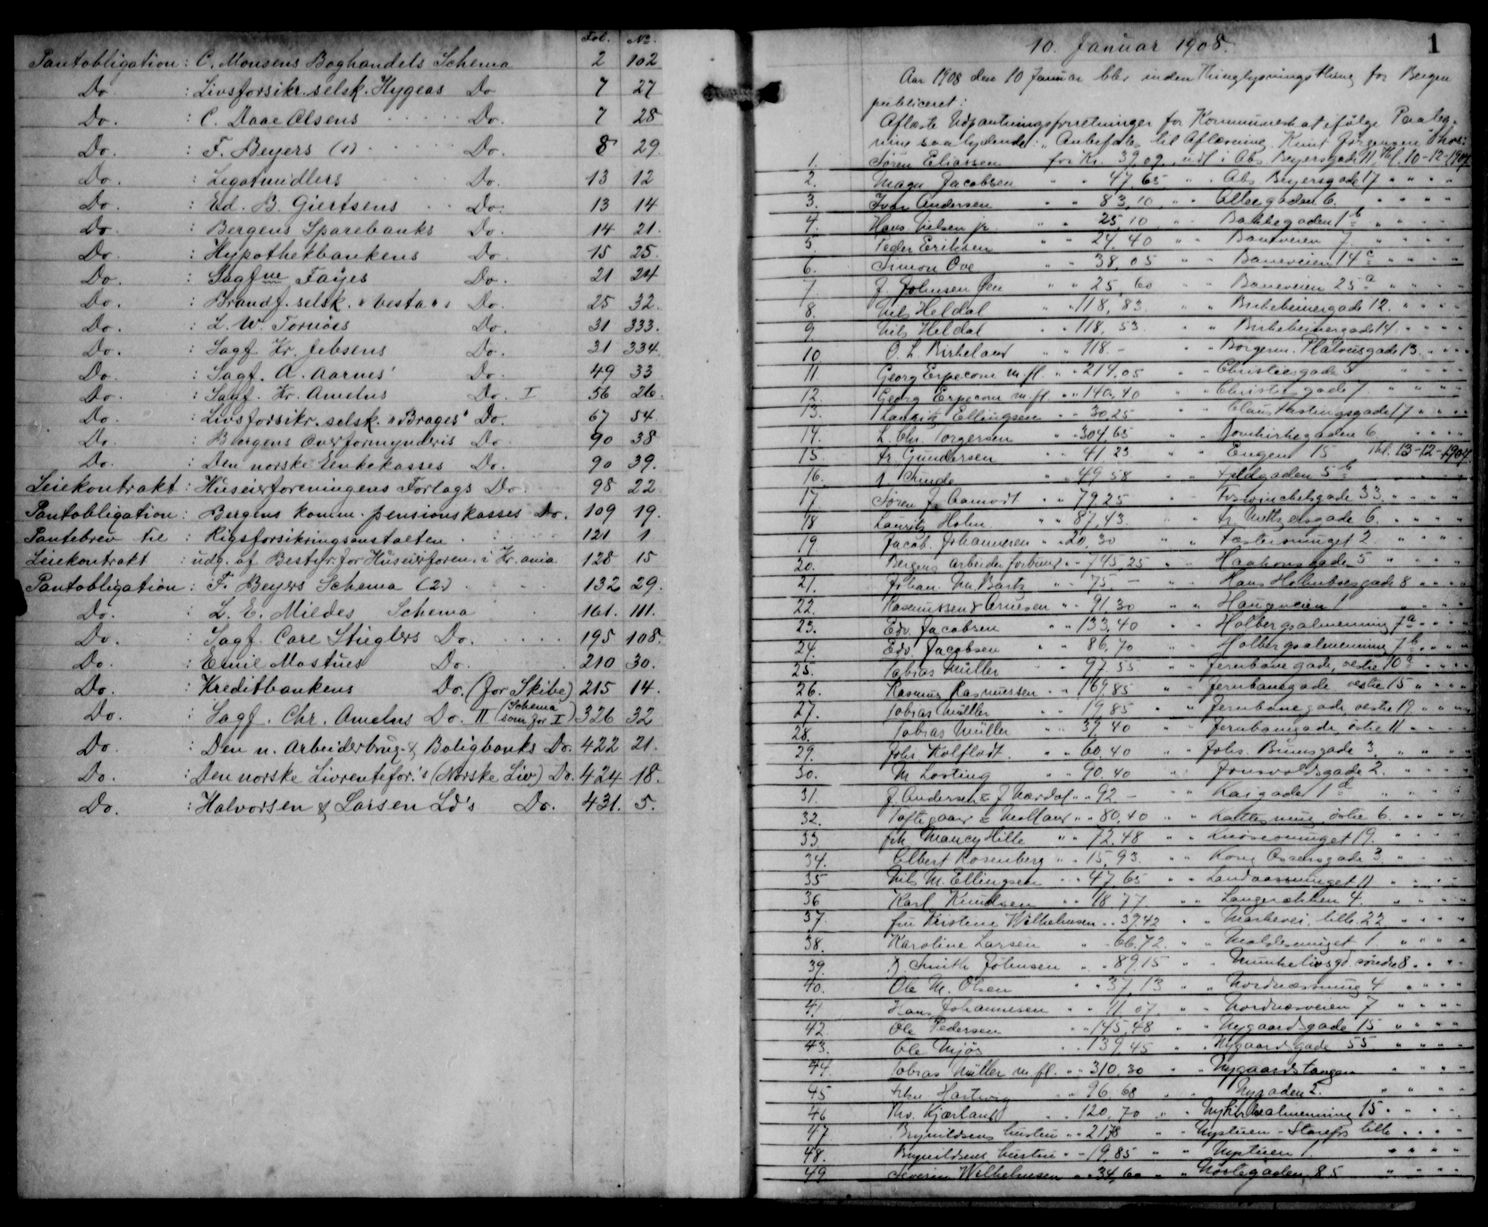 Fol. No.
Pantobligation : C. Monsens Boghandels Schema 2 102
Do. : Livsforsikr. selsk. Hygeas Do 7 27
Do. : C. Daae Olsens Do. 7 28
Do. : F. Beyers (1) Do. 8 29.
Do. : Legatmidlers Do. 13 12
Do. : Ed. B. Giertsens Do. 13 14
Do. : Bergens Sparebanks Do. 14 21.
Do. : Hypothekbankens Do. 15 25.
Do. : Sagf. Fayes Do. 21 24
Do. : Brandf. selsk. "Vesta"s Do. 25 32.
Do. : L. W. Tornöes Do. 31 333.
Do. : Sagf. Kr. Jebsens Do. 31 334.
Do. : Sagf. A. Aarnes' Do. 49 33
Do. : Sagf. Kr. Amelns Do. I 56 26.
Do. : Livsforsikr. selsk. "Brages" Do. 67 54.
Do. : Bergens Overformynderis Do. 90 38
Do. : Den norske Enkekasses Do. 90 39.
Leiekontrakt : Huseierforeningens Forlags Do. 98 22
Pantobligation : Bergens komm. pensionskasses Do. 109 19.
Pantebrev til : Rigsforsikringsanstalten 121 1
Leiekontrakt : udg. af Bestyr. for Huseierforen. i Kr.ania 128 15
Pantobligation : F. Beyers Schema (2) 132 29.
Do. : L. E. Mildes Schema 161. 111.
Do. : Sagf. Carl Stieglers Do. 195 108.
Do. : Emil Mostues Do. 210 30.
Do. : Kreditbankens Do. (for Skibe) 215 14.
Do. : Sagf. Chr. Amelns Do. II (Schema som for I) 326 32
Do. : Den n. Arbeiderbrug- & Boligbanks Do. 422 21.
Do. : Den norske Livrentefor.'s (Norske Liv) Do. 424 18.
Do. : Halvorsen & Larsen Ld's Do. 431. 5.
10. Januar 1908. 1
Aar 1908 den 10 Januar blev inden Thinglysningsthing for Bergen
publiceret:
Aflæste Udpantningsforretninger for Kommuneskat ifølge Paateg-
ning saalydende: "Anbefales til Aflæsning Knut Jørgensen
1. Søren Eliassen for Kr. 39,09 udf i Abs. Beyersgade 11 Thl. 10-12-1907
2. Magn Jacobsen " " 47,65 " " Abs. Beyersgade 17 " " " "
3. Ivar Andersen " " 83,10 " " Alleegaden 6. " " " "
4. Hans Nielsen jr. " " 25,10 " " Bakkegaden 1 b " " " "
5. Peder Eriksen " " 24,40 " " Baneveien 7. " " " "
6. Simon Ove " " 38,05 " " Baneveien 14 c " " " "
7. J. Johnsen Øen " " 25,60 " " Baneveien 25 a " " " "
8. Nils Heldal " 118,83. " " Birkebeinergade 12. " " " "
9 Nils Heldal " 118,53 " " Birkebeinergade 14 " " " "
10 O. L. Birkeland " " 118 - " " Borgerm. Platousgade 13. " " "
11 Georg Erpecom m.fl. " 214,05 " " Christiesgade 5 " " " "
12. Georg Erpecom m.fl. " " 140,40 " " Christiesgade 7 " " " "
13. Lauritz Ellingsen " " 30,25 " " Claus Hastingsgade 17 " " " "
14. L. Chr. Torgersen " 304,65 " " Domkirkegaden 6 " " " "
15 Fr. Gundersen " " 41,23 " " Engen 15 Thl. 13-12-1907
16. " " 49,58 " " 5 b " " " "
17 Søren J. Aamodt " " 79,25 " " 33. " " " "
18 Lauritz Holm " " 87,43. " " 6. " " " "
19 Jacob Johannesen " " 20,30 " " 2. " " " "
20. Bergens Arbeider forbund " " 745,25 " " Haakonsgade 5 " " " "
21. Johan Bartz " " 75 - " " Hans Holmboesgade 8 " " " "
22. Rasmussen & Arnesen " " 91,30 " " Haugeveien 1 " " " "
23. Edv. Jacobsen " " 133,40 " " Holbergsalmenning 7 a " " " "
24. Edv. Jacobsen " " 86,70 " " Holbergsalmenning 7 b " " " "
25. Tobias Müller " " 97,55 " " Jernbanegade, vestre 10 a " " " "
26. Rasmus Rasmussen " " 169,85 " " Jernbanegade vestre 15 " " " "
27. Tobias Müller " " 19,85 " " Jernbanegade vestre 19 " " " "
28. Tobias Müller " " 39,40 " " Jernbanegade östre 11 " " " "
29. Johs. Kolflaat " " 60,40 " " Johs. Bruunsgade 3. " " " "
30. M. Losting " " 90,40 " " Jonsvoldsgade 2. " " " "
31. J. Andersen & J. " " 92 - " " Kaigaden 1 d " " " "
32. & " " 80,40 " " östre 6. " " " "
33 Nancy Hille " " 72,48 " " Knøsesmuget 19. " " " "
34. Elbert Rosenberg " " 15,93. " " Kong Oscarsgade 3 " " " "
35 Nils M. Ellingsen " " 47,65 " " Landaassmuget 11 " " " "
36 Karl Knudsen " " 18,77 " " Langerækken 4. " " " "
37. fru Kristine Wilhelmsen " " 39,42 " " Markevei lille 22 " " " "
38. Karoline Larsen " " 66,72. " " Moldesmuget 1. " " " "
39. D. Smith Johnsen " " 89,15 " " Munkelivsgd. söndre 8 " " " "
40. Ole M. Olsen " " 37,13 " " Nordnæssmug 4 " " " "
41 Hans Johannesen " " 11,07. " " Nordnæsveien 7 " " " "
42. Ole Pedersen " " 145,48 " " Nygaardsgade 15 " " " "
43. Ole Mjös " " 139,45 " " Nygaardsgade 55 " " " "
44. Tobias Müller m. fl. " " 310,30 " " Nygaardstangen " " " "
45 Hartwig " " 96,68 " " Nygaden 2. " " " "
46 Ths. Kjærland " " 120,70 " " Nykirkealmenning 15 " " " "
47 Brynildsens hustru " " 21,78 " " Nystuen - Storefos lille " " " "
48. Brynildsens hustru " " 19,85 " " Nystuen 1. " " " "
49 Severin Wilhelmsen " " 34,60 " " Nöstegaden 85 " " " "